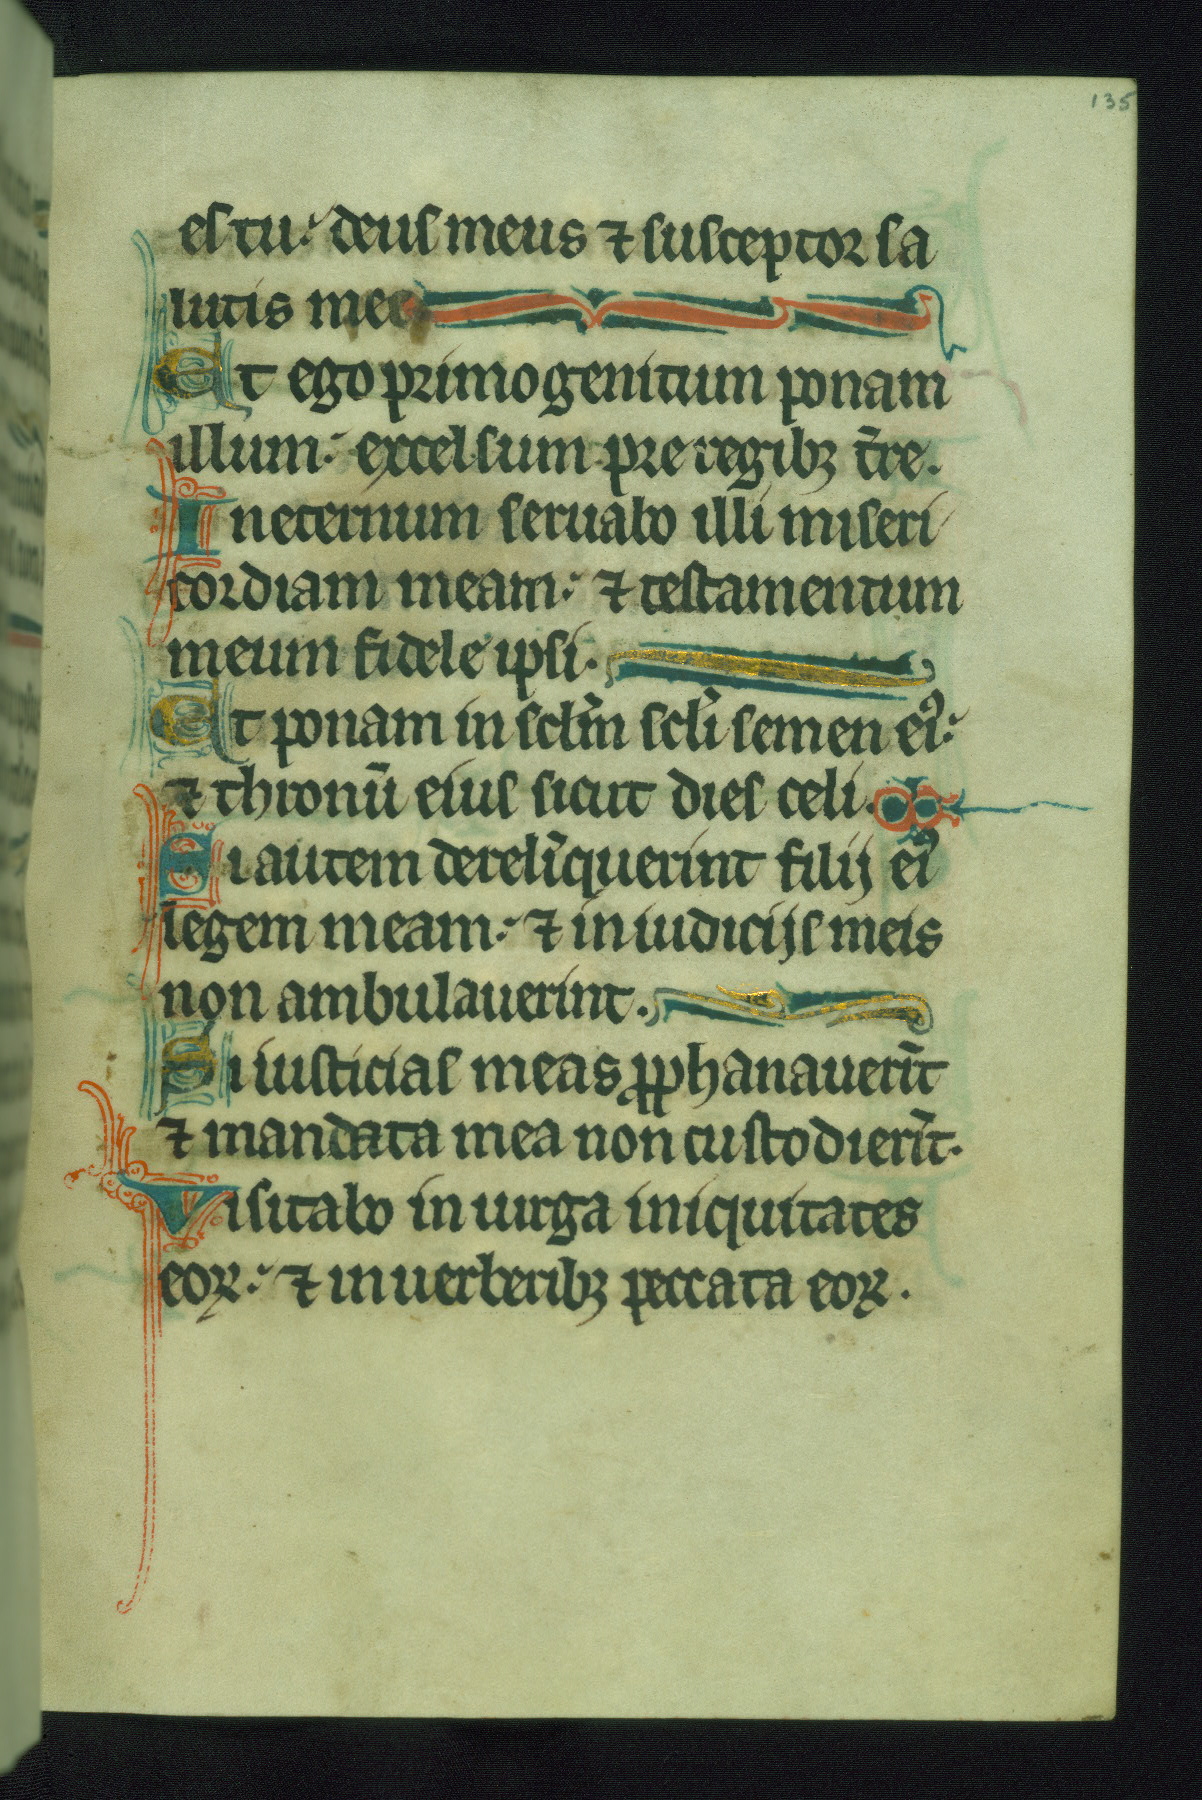 135
es tu: deus meus ⁊ susceptor sa
lutis mee
Et ego primogenitum ponam
illum: excelsum pre regibꝫ t̄re.
In eternum seruabo illi miseri
cordiam meam: ⁊ testamentum
meum fidele ipsi.
Et ponam in sclm̄ scl̄i semen eiꝰ:
⁊ thronū eius sicut dies celi.
Si autem derelīquerint filij eiꝰ
legem meam: ⁊ in iudicijs meis
non ambulauerint.
Si iusticias meas ꝓphanauerīt
⁊ mandata mea non custodierīt.
Visitabo in uirga iniquitates
eoꝝ: ⁊ in uerberibꝫ peccata eoꝝ.